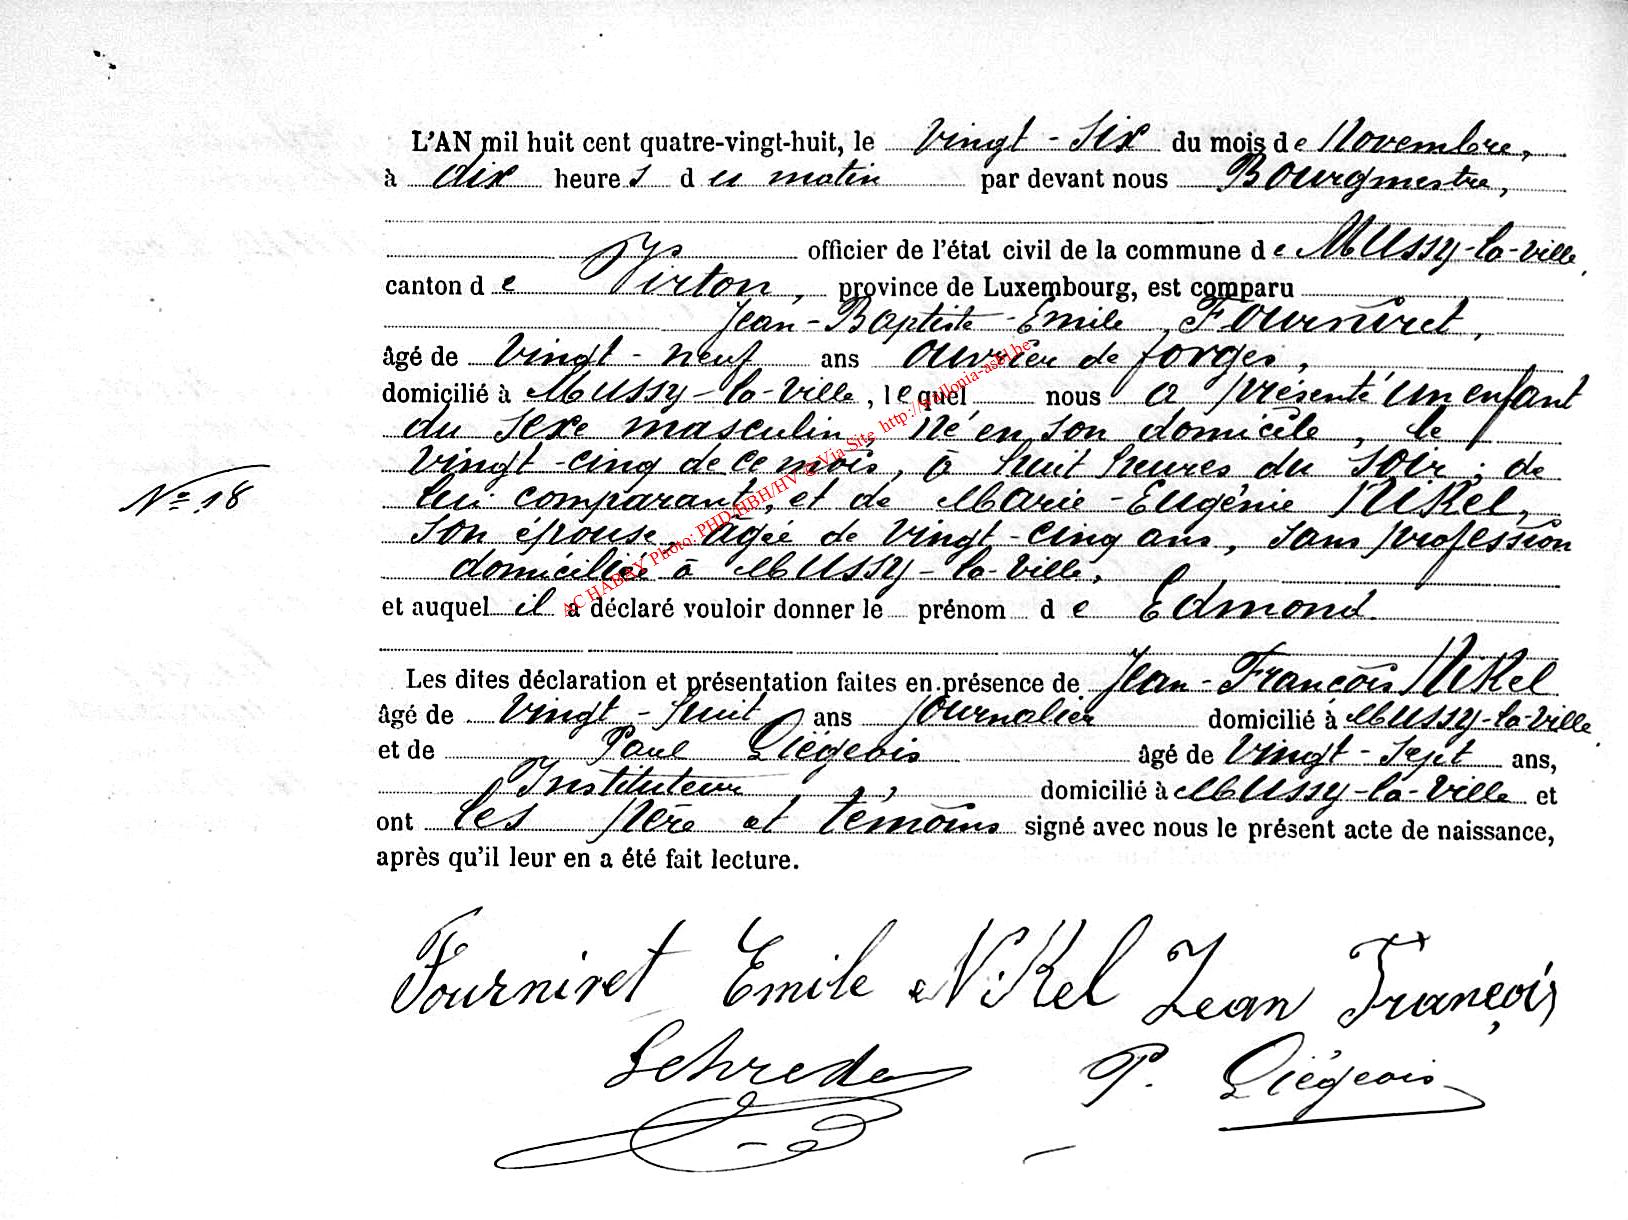 L'AN mil huit cent quatre-vingt-huit, le vingt-six du mois de Novembre,
à dix heures du matin par devant nous Bourgmestre,
officier de l'état civil de la commune de Mussy-la-Ville,
canton de Virton, province de Luxembourg, est comparu
Jean-Baptiste-Emile Fourniret,
âgé de vingt-neuf ans ouvrier de forges,
domicilié à Mussy-la-Ville, lequel nous a présenté un enfant
du sexe masculin, né en son domicile, le
vingt-cinq de ce mois, à huit heures du soir, de
N° 18
lui comparant, et de Marie-Eugénie Nikel,
son épouse, âgée de vingt-cinq ans, sans profession
domiciliée à Mussy-la-Ville,
et auquel il a déclaré vouloir donner le prénom de Edmond.
Les dites déclaration et présentation faites en présence de Jean-François Nikel
âgé de vingt-huit ans journalier domicilié à Mussy-la-Ville,
et de Paul Liégeois âgé de vingt-sept ans,
Instituteur, domicilié à Mussy-la-Ville et
ont les père et témoins signé avec nous le présent acte de naissance,
après qu'il leur en a été fait lecture.
AC HABAY Photo: PHD-HBH/HV © Via Site http://wallonia-asbl.be
Fourniret Emile Nikel Jean François
Schreder P. Liégeois